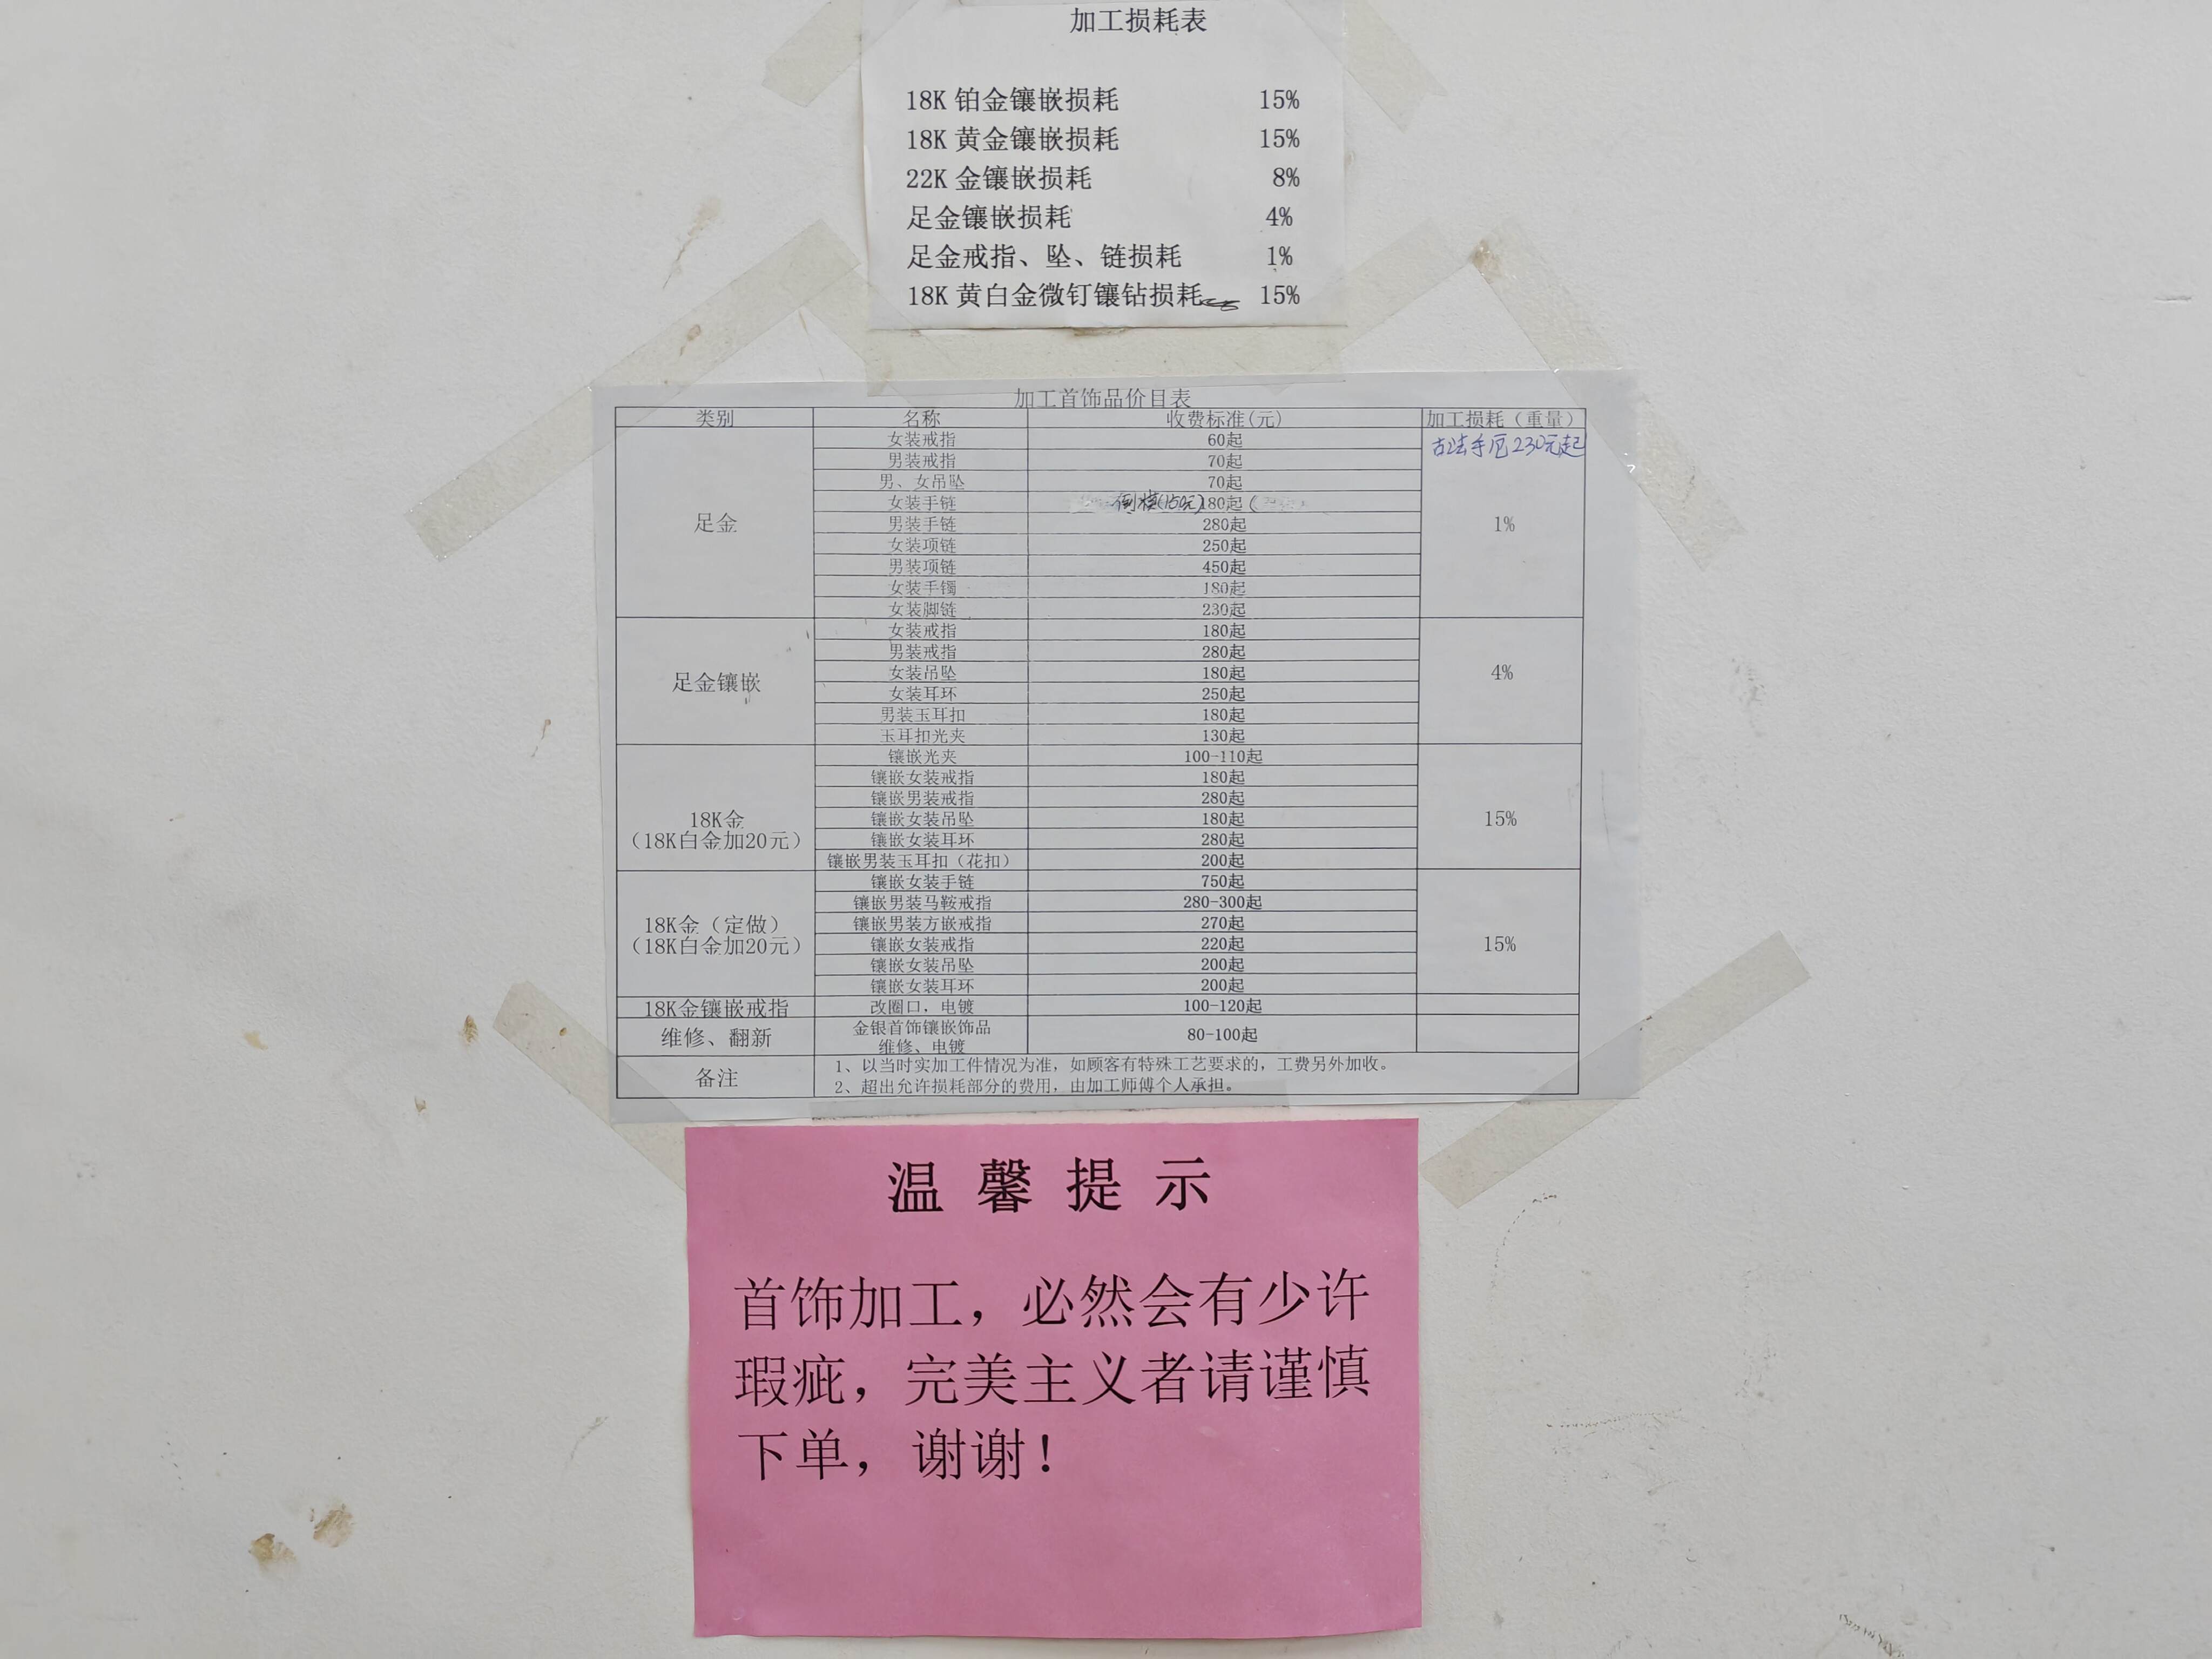 加工损耗表
18K 铂金镶嵌损耗 15%
18K 黄金镶嵌损耗 15%
22K 金镶嵌损耗 8%
足金镶嵌损耗 4%
足金戒指、坠、链损耗 1%
18K 黄白金微钉镶钻损耗 15%
加工首饰品价目表
类别 名称 收费标准(元) 加工损耗（重量）
足金 女装戒指 60起 1%
古法手 230元起
男装戒指 70起
男、女吊坠 70起
女装手链 倒模(15元) 180起 (
男装手链 280起
女装项链 250起
男装项链 450起
女装手镯 180起
女装脚链 230起
足金镶嵌 女装戒指 180起 4%
男装戒指 280起
女装吊坠 180起
女装耳环 250起
男装玉耳扣 180起
玉耳扣光夹 130起
18K金 镶嵌光夹 100-110起 15%
（18K白金加20元） 镶嵌女装戒指 180起
镶嵌男装戒指 280起
镶嵌女装吊坠 180起
镶嵌女装耳环 280起
镶嵌男装玉耳扣（花扣） 200起
18K金（定做） 镶嵌女装手链 750起 15%
（18K白金加20元） 镶嵌男装马鞍戒指 280-300起
镶嵌男装方嵌戒指 270起
镶嵌女装戒指 220起
镶嵌女装吊坠 200起
镶嵌女装耳环 200起
18K金镶嵌戒指 改圈口，电镀 100-120起
维修、翻新 金银首饰镶嵌饰品 80-100起
维修、电镀
备注 1、以当时实加工件情况为准，如顾客有特殊工艺要求的，工费另外加收。
2、超出允许损耗部分的费用，由加工师傅个人承担。
温馨提示
首饰加工，必然会有少许
瑕疵，完美主义者请谨慎
下单，谢谢！